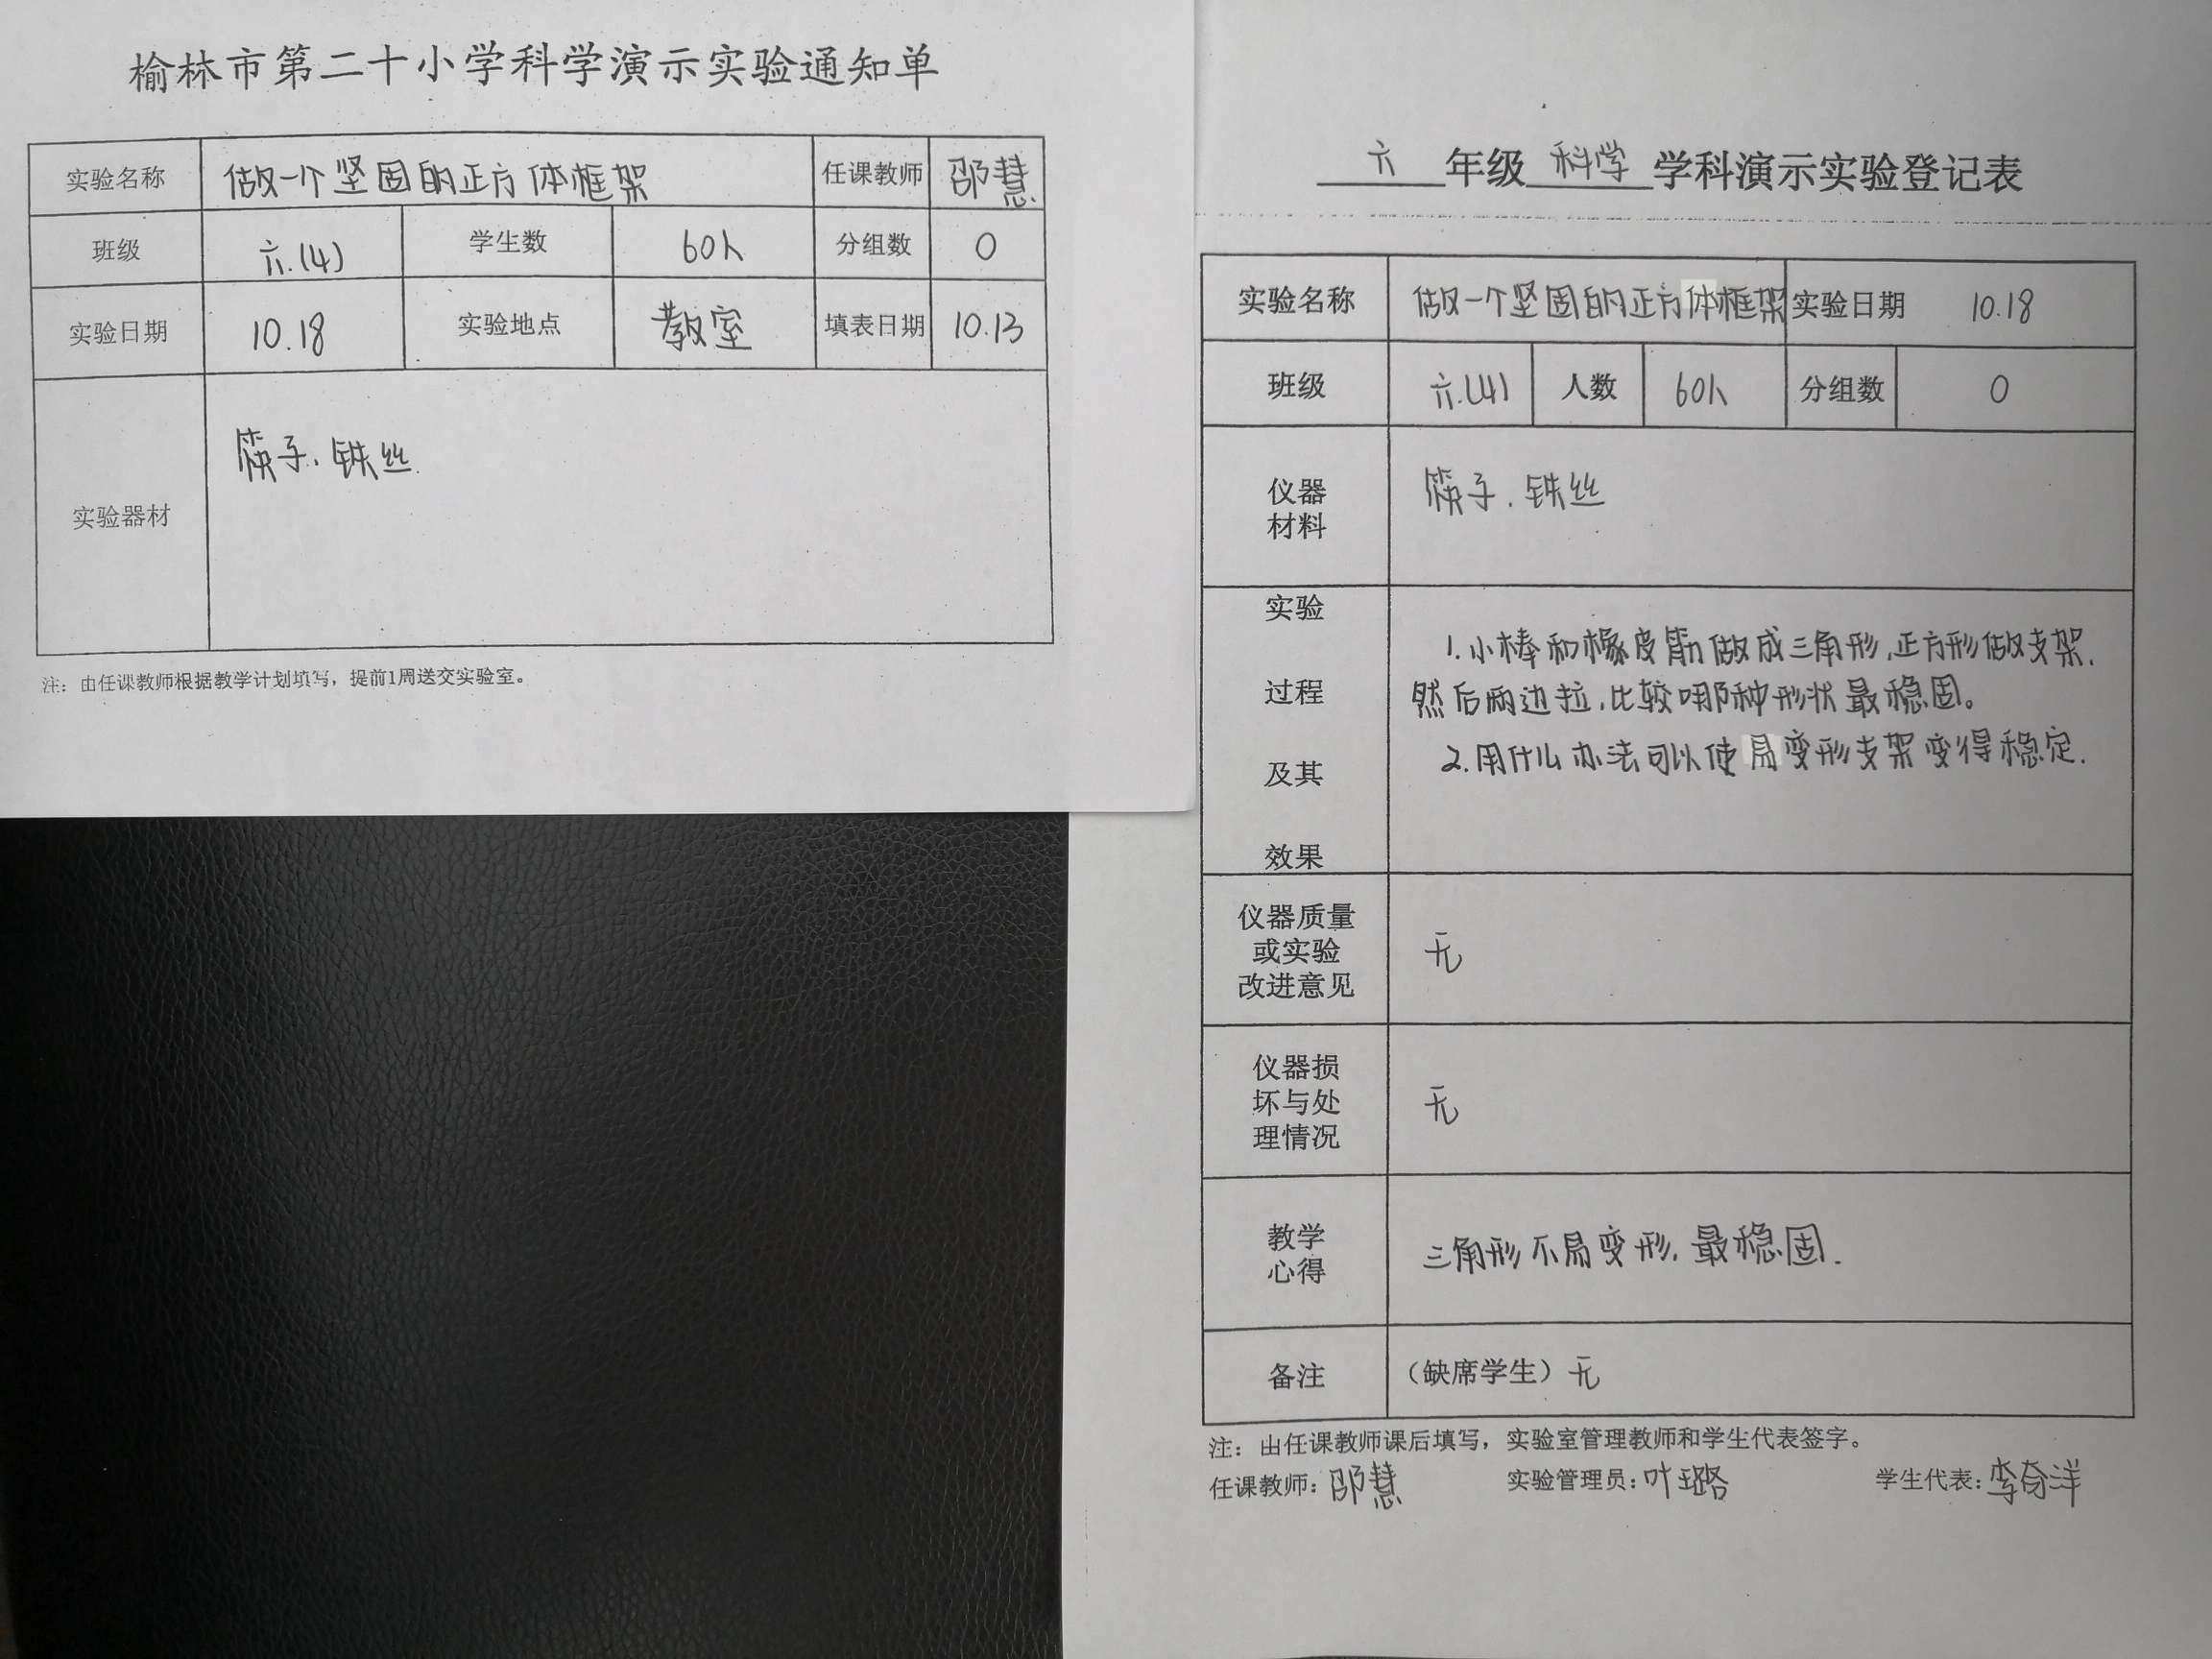 榆林市第二十小学科学演示实验通知单
实验名称 做一个坚固的正方体框架 任课教师 邵慧
班级 六.(4) 学生数 60人 分组数 0
实验日期 10.18 实验地点 教室 填表日期 10.13
实验器材 筷子、铁丝.
注：由任课教师根据教学计划填写，提前1周送交实验室。
六 年级 科学 学科演示实验登记表
实验名称 做一个坚固的正方体框架 实验日期 10.18
班级 六.(4) 人数 60人 分组数 0
仪器
材料
筷子.铁丝
实验
过程
及其
效果
1.小棒和橡皮筋做成三角形,正方形做支架.
然后两边拉,比较哪种形状最稳固。
2.用什么办法可以使易变形支架变得稳定.
仪器质量
或实验
改进意见
无
仪器损
坏与处
理情况
无
教学
心得
三角形不易变形,最稳固.
备注 （缺席学生）无
注：由任课教师课后填写，实验室管理教师和学生代表签字。
任课教师：邵慧 实验管理员：叶璐 学生代表：李奇洋